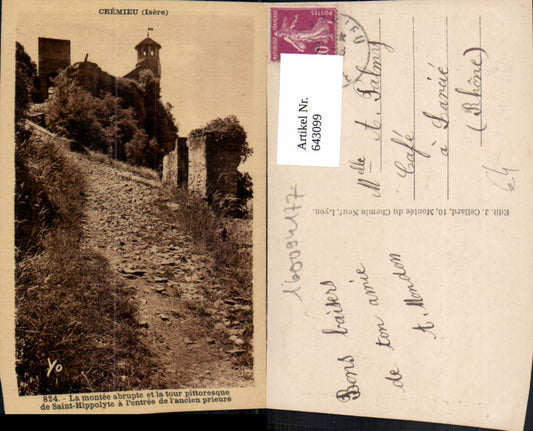 CRÉMIEU (Isère)
Yo
824. - La montée abrupte et la tour pittoresque
de Saint-Hippolyte à l'entrée de l'ancien prieuré
POSTES
Artikel Nr.
643099
Melle A. Palmy
Café
à Lancié
(Rhône)
Edit. J. Cellard, 10, Montée du Chemin Neuf, Lyon.
160094177
Bons baisers
de ton amie
A. Mondon